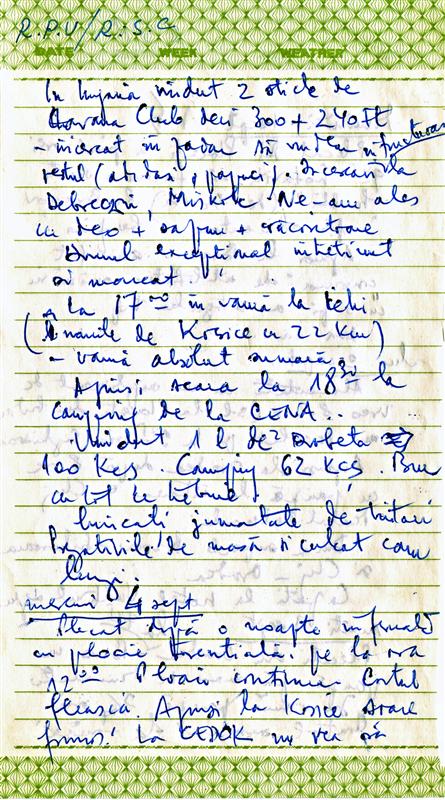 R.P.U/R.S.C
DATE WEEK WEATHER
In Ungaria vîndut 2 sticle de
Havana Club deci 300 + 240 Ft
- încercat în fața să vindem infructuos
restul (adidași, papuci). Încercări la
Debrecen, Miskolc. Ne-am ales
cu deo + săpun + răcoritoare
Drumul excepțional întreținut
și marcat.
La 17 00 în vamă la cehi
(Înainte de Kosice cu 22 km)
- vamă absolut sumară
Ajunși seara la 18 30 la
camping de la CENA..
Vîndut 1 l de Drobeta
100 Kcs. Camping 62 KCS. Bun
cu tot ce trebuie.
jumătate de
Pregătirile de masă și culcat
miercuri 4 sept
Plecat după o noapte infernală
cu ploaie torențială. pe la ora
12 00 Ploaia continuă Cortul
fleașcă. Ajunși la Kosice soare
frumos. La CEDOK nu vrea să